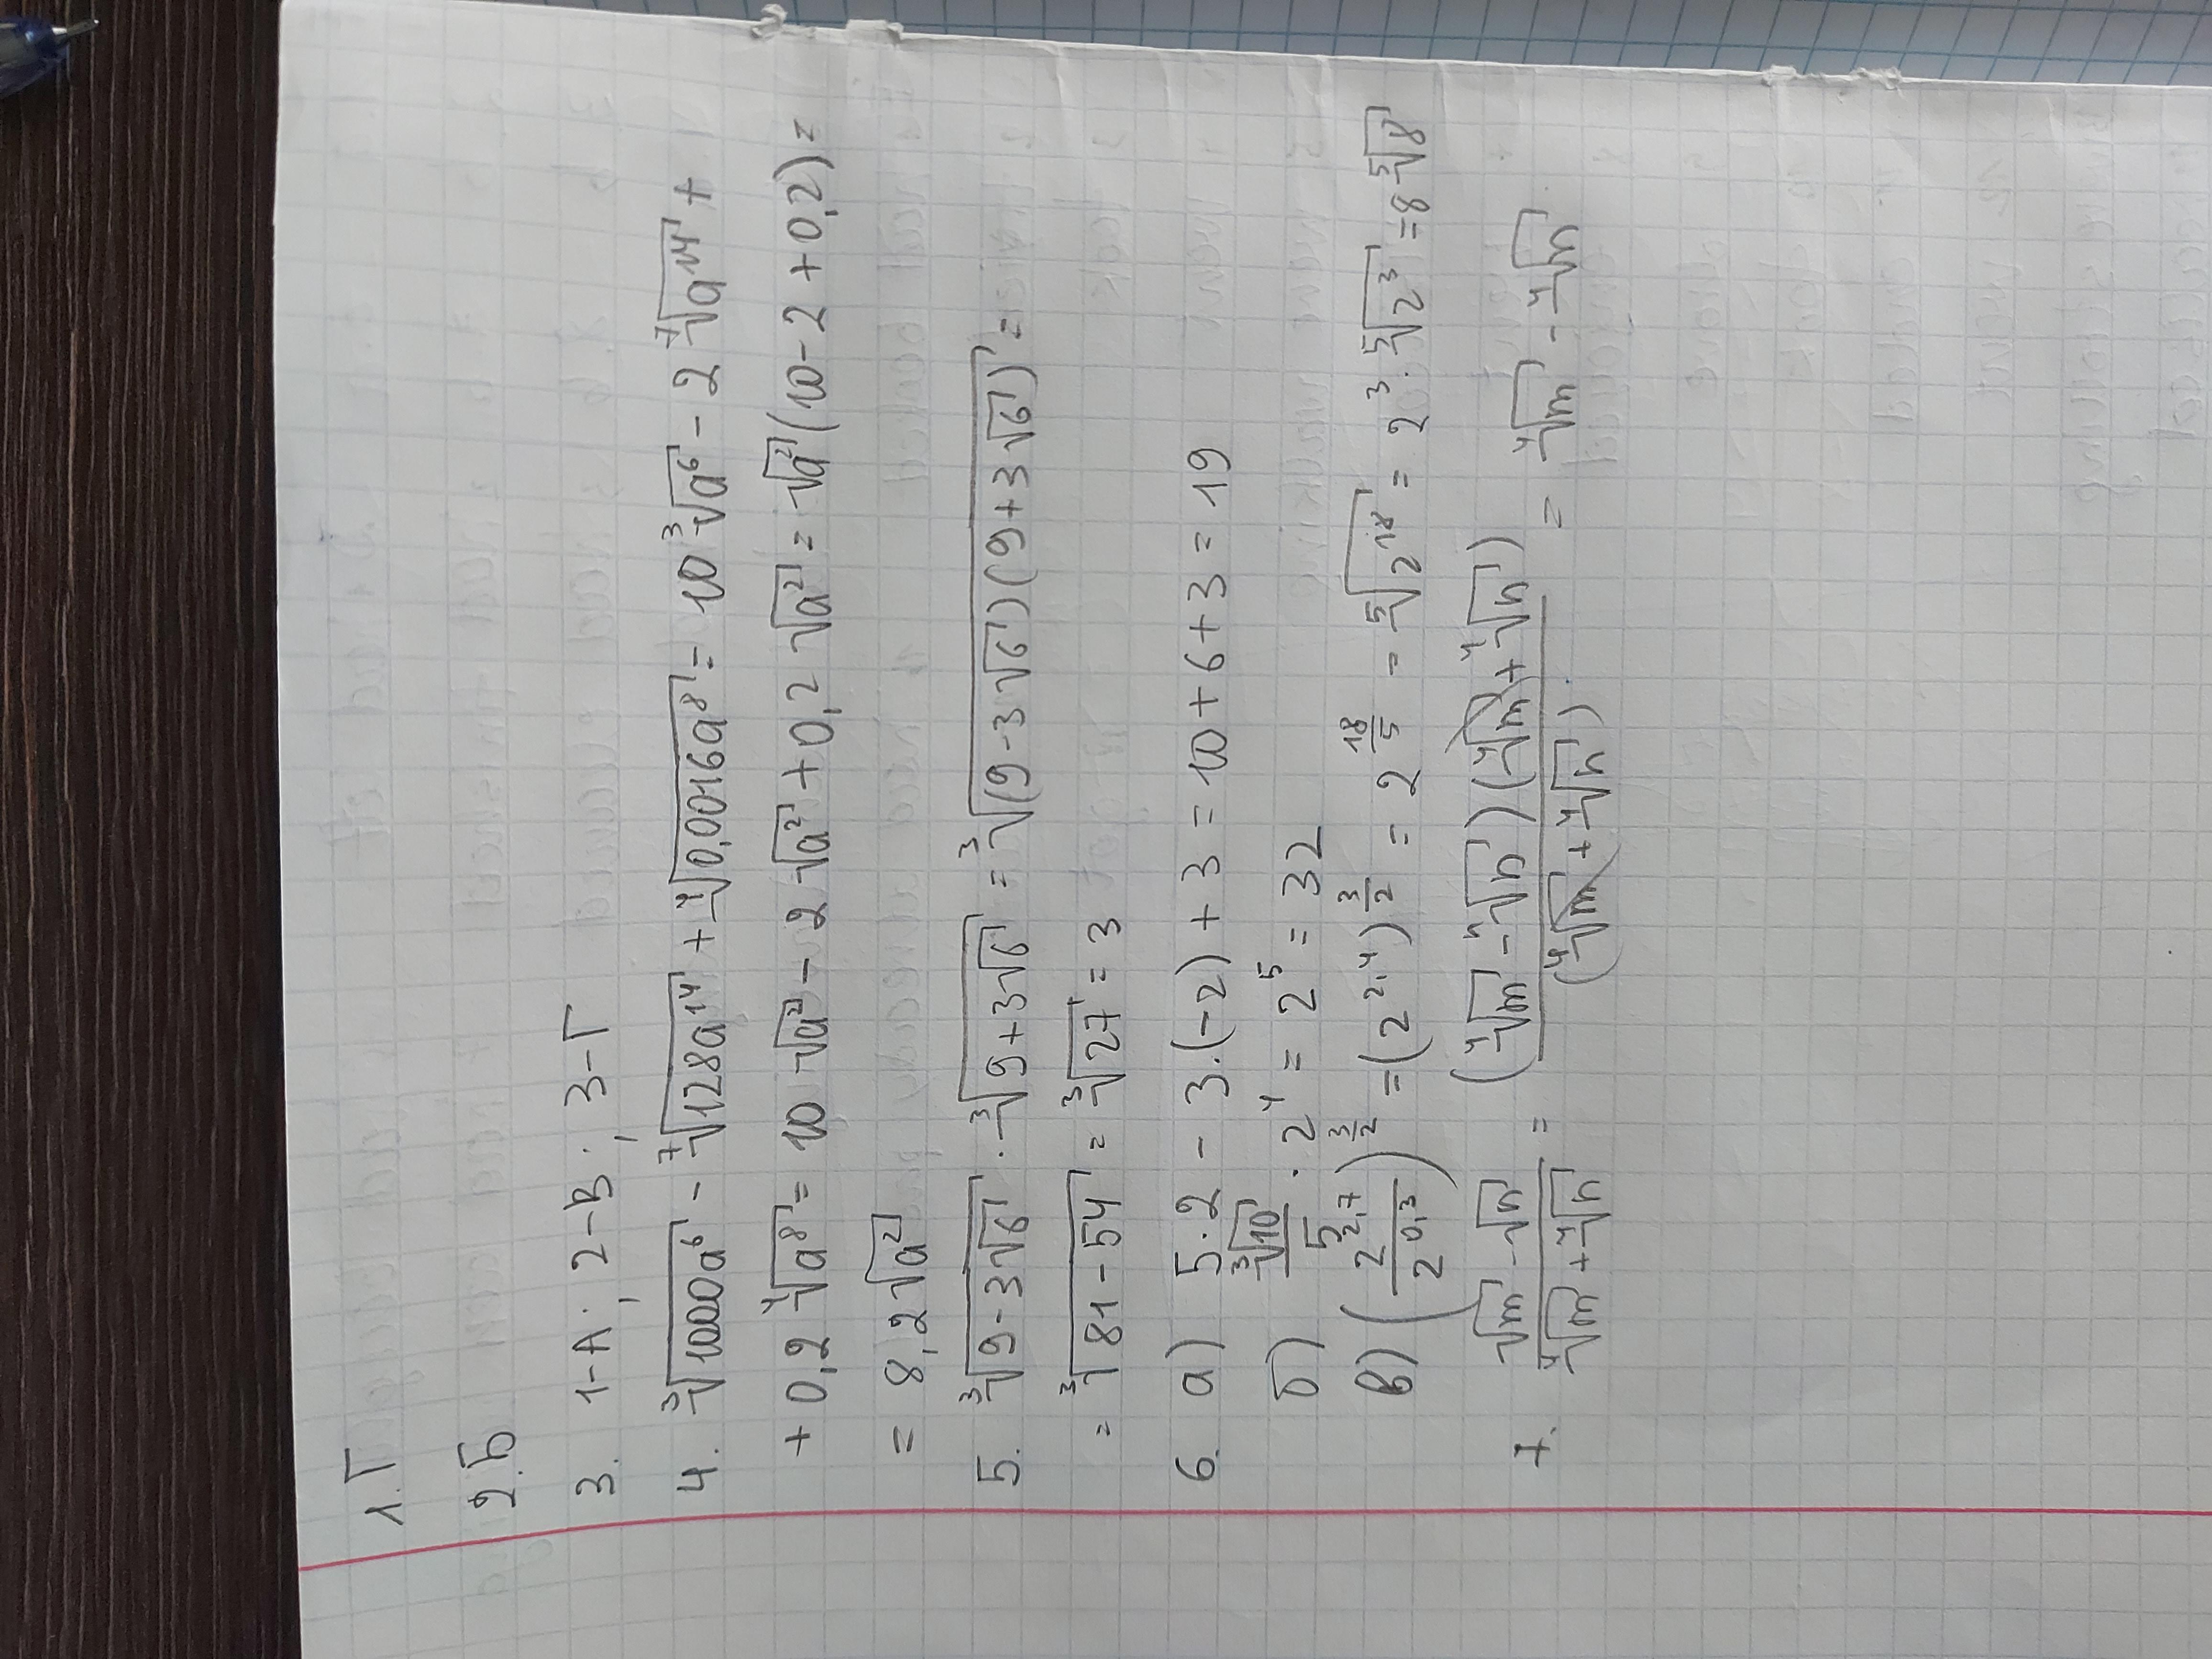 1. Г
2. Б
3. 1-А; 2-В; 3-Г
4. ∛(1000a⁶) - ⁷√(128a¹⁴) + ⁴√(0,0016a⁸) = 10 ∛(a⁶) - 2 ⁷√(a¹⁴) +
+ 0,2 ⁴√(a⁸) = 10 √(a²) - 2 √(a²) + 0,2 √(a²) = √(a²) (10 - 2 + 0,2) =
= 8,2 √(a²)
5. ∛(9-3√6) · ∛(9+3√6) = ∛((9-3√6)(9+3√6)) =
= ∛(81-54) = ∛27 = 3
6. а) 5·2 - 3·(-2) + 3 = 10 + 6 + 3 = 19
б) ∛10/5 · 2⁴ = 2⁵ = 32
в) (2^2,7/2^0,3)^(3/2) = (2^2,4)^(3/2) = 2^(18/5) = ⁵√(2¹⁸) = 2³ · ⁵√(2³) = 8 ⁵√8
7. (√m - √n)/(⁴√m + ⁴√n) = ((⁴√m - ⁴√n)(⁴√m + ⁴√n))/(⁴√m + ⁴√n) = ⁴√m - ⁴√n